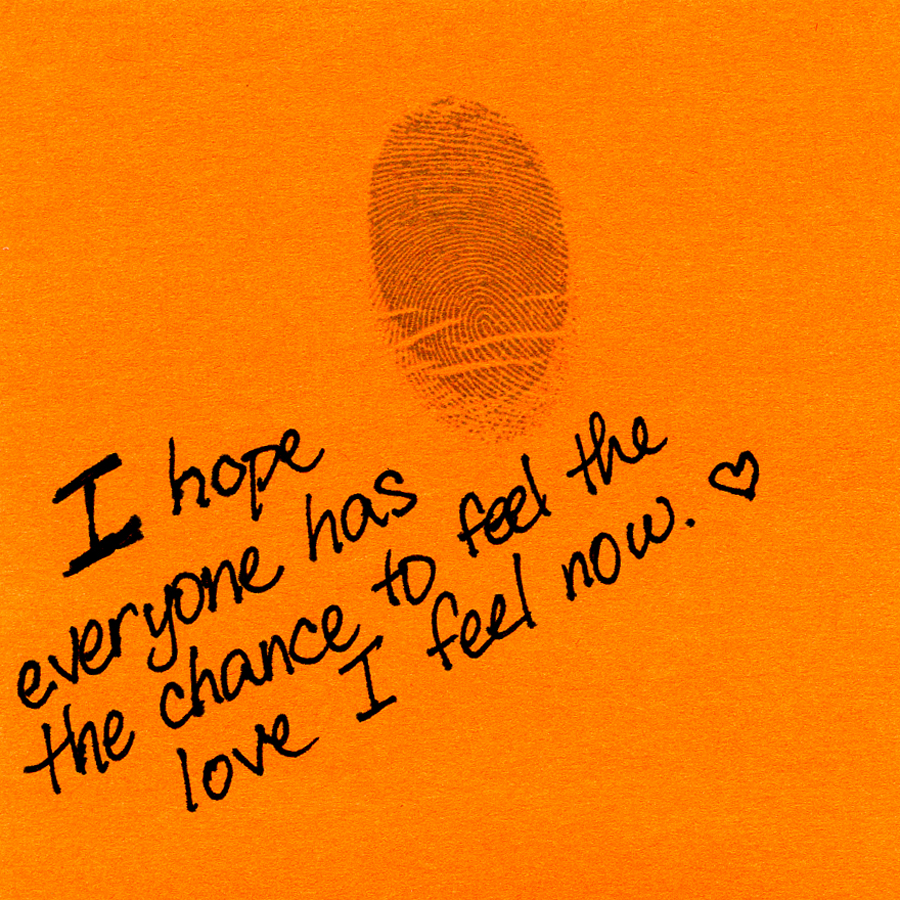 I hope
everyone has
the chance to feel the
love I feel now. ♡